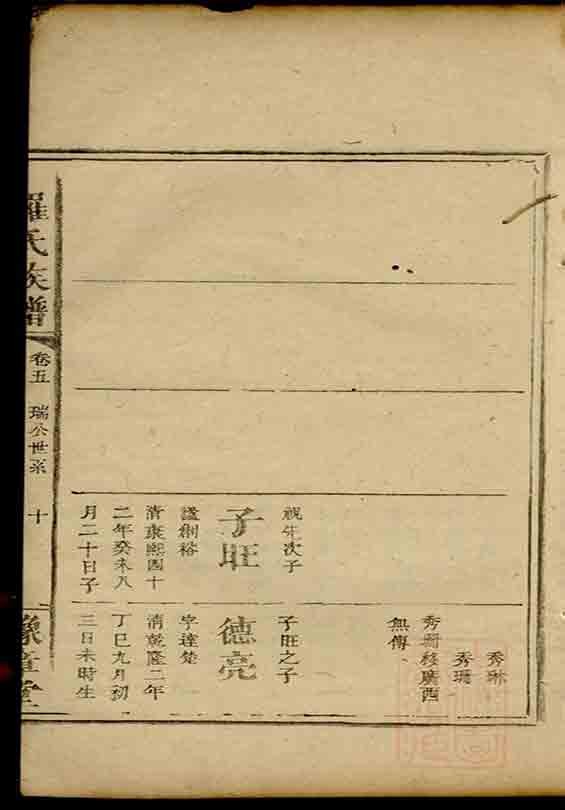 秀琳
秀珊
秀珊移廣西
無傳
視先次子
子旺
清康熙四十
二年癸未八
月二十日子
子旺之子
德亮
字達楚
清乾隆二年
丁巳九月初
三日未時生
羅氏族譜
卷五
瑞公世系
十
豫章堂